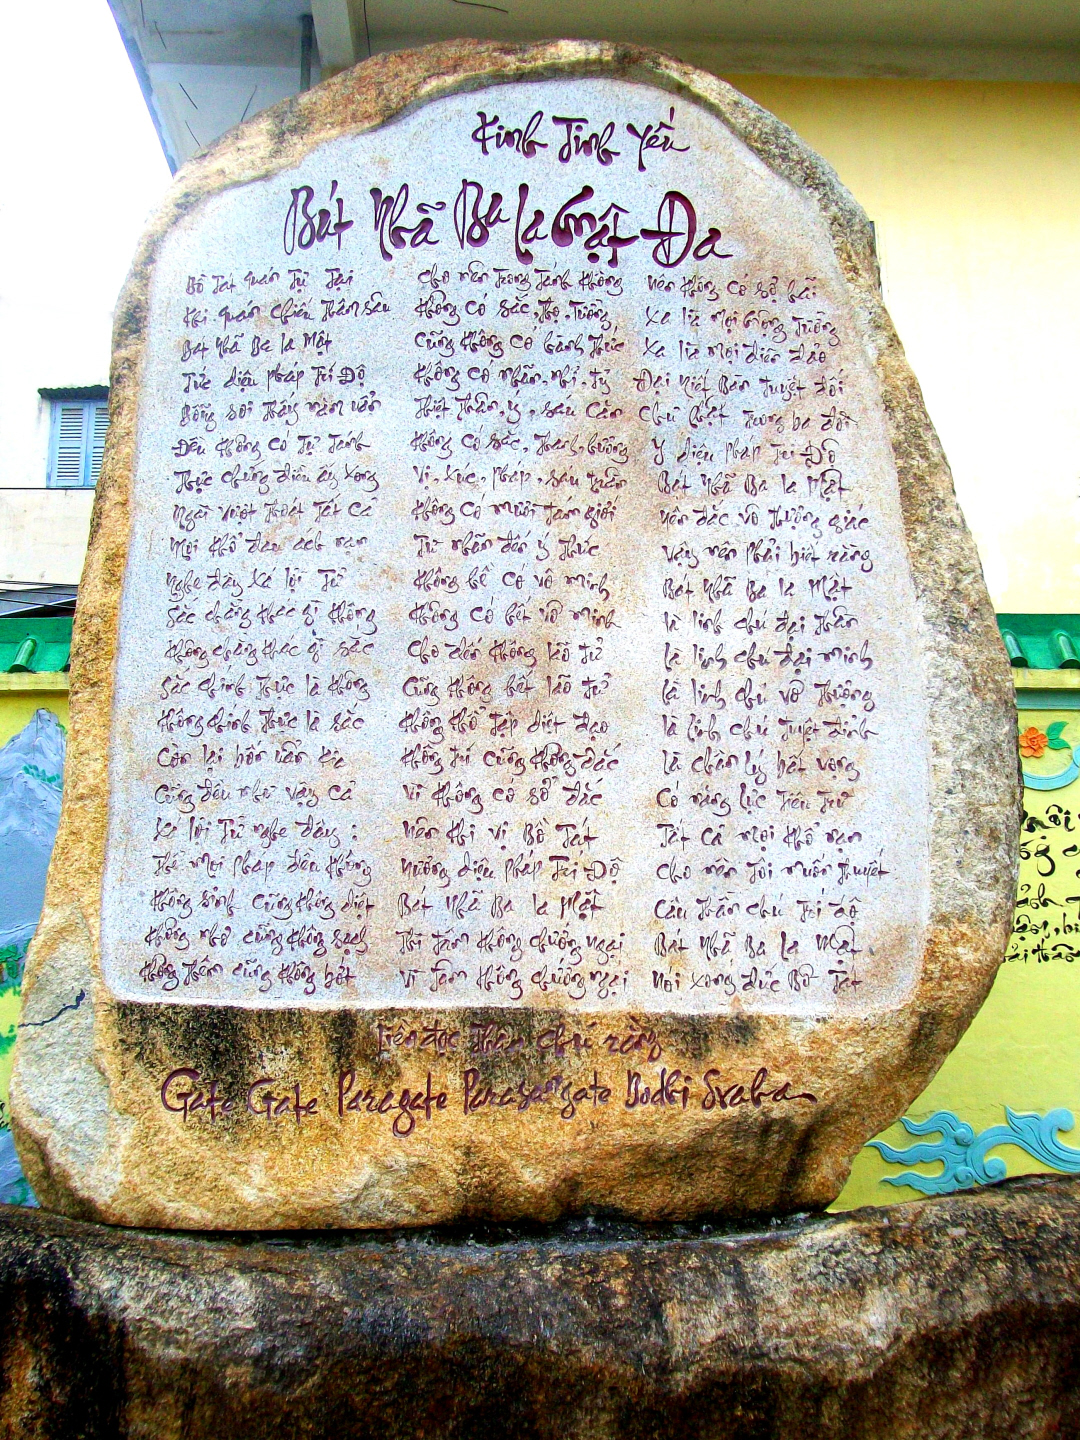 Kinh Tinh Yếu
Bát Nhã Ba la mật Đa
Bồ Tát Quán Tự Tại
Khi quán chiếu thâm sâu
Bát Nhã Ba la Mật
Tức diệu Pháp Trí Độ
Bỗng soi thấy năm uẩn
Đều không có Tự Tánh
Thực chứng điều ấy xong
Ngài vượt thoát Tất cả
Mọi khổ đau ách nạn
Nghe đây Xá lợi Tử
Sắc chẳng khác gì không
Không chẳng khác gì sắc
Sắc chính thực là không
Không chính thực là sắc
Còn lại bốn uẩn kia
Cũng đều như vậy cả
Xá lợi Tử nghe đây :
Thể mọi pháp đều không
Không sinh cũng không diệt
Không nhơ cũng không sạch
Không thêm cũng không bớt
Cho nên trong tánh không
Không có sắc, thọ, tưởng
Cũng không có hành thức
Không có nhãn, nhĩ, tỷ
Thiệt thân, ý, sáu căn
Không có sắc, thanh, hương
Vị, xúc, pháp, sáu trần
Không có mười tám giới
Từ nhãn đến ý thức
Không hề có vô minh
Không có hết vô minh
Cho đến không lão tử
Cũng không hết lão tử
Không khổ tập diệt đạo
Không trí cũng không đắc
Vì không có sở đắc
Nên khi vị Bồ Tát
Nương diệu Pháp Trí Độ
Bát Nhã Ba la Mật
Thì tâm không chướng ngại
Vì tâm không chướng ngại
Nên không có sợ hãi
Xa lìa mọi mộng tưởng
Xa lìa mọi điên đảo
Đạt Niết Bàn tuyệt đối
Chư Phật trong ba đời
Y diệu Pháp Trí Độ
Bát Nhã Ba la Mật
Nên đắc vô thượng giác
Vậy nên phải biết rằng
Bát Nhã Ba la Mật
Là linh chú đại thần
Là linh chú đại minh
Là linh chú vô thượng
Là linh chú tuyệt đỉnh
Là chân lý bất vọng
Có năng lực tiêu trừ
Tất cả mọi khổ nạn
Cho nên tôi muốn thuyết
Câu thần chú trí độ
Bát Nhã Ba la Mật
Nói xong đức Bồ Tát
Liền đọc thần chú rằng
Gate Gate Paragate Parasamgate Bodhi Svaha